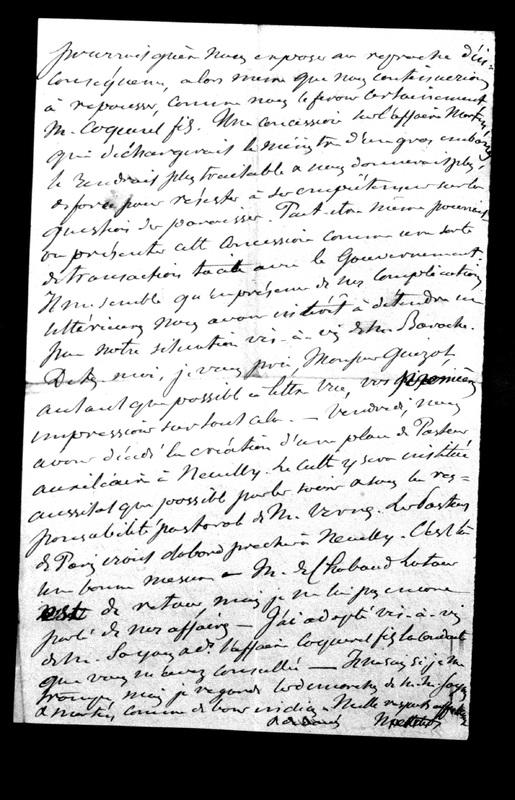 pourrais qu'à nous exposer au reproche d'in-
conséquence, alors même que nous continuerions
à repousser, comme nous le ferons certainement
M. Coquerel fils. Une concession sur l'affaire Martin
qui déchargerait le ministre d'un gros embarras
le rendrait plus traitable & nous donnerait plus
de force pour résister à ses empiètemens sur la
question des paroisses. Peut être même pourrait
on présenter cette concession comme une sorte
de transaction tacite avec le Gouvernement.
Il me semble qu'en présence de ces complications
ultérieures nous avons intérêt à détendre un
peu notre situation vis-à-vis de M. Baroche.
Dites moi, je vous prie, Monsieur Guizot,
autant que possible à lettre vue, vos premières
impressions sur tout cela. — Vendredi nous
avons décidé la création d'une place de Pasteur
auxiliaire à Neuilly. Le culte y sera institué
aussitôt que possible par les soins & sous la res-
ponsabilité pastorale de M. Vernes. Les pasteurs
de Paris iront d'abord prêcher à Neuilly. C'est là
une bonne mesure — M. de Chabaud Latour
est de retour, mais je ne lui pas encore
parlé de nos affaires — J'ai adopté vis-à-vis
de M. Sayous & de l'affaire Coquerel fils la conduite
que vous m'avez conseillé — Je ne sais si je me
trompe mais je regarde les démarches de M. M. Sayous
& Martin, comme de bons indices. Mille respects